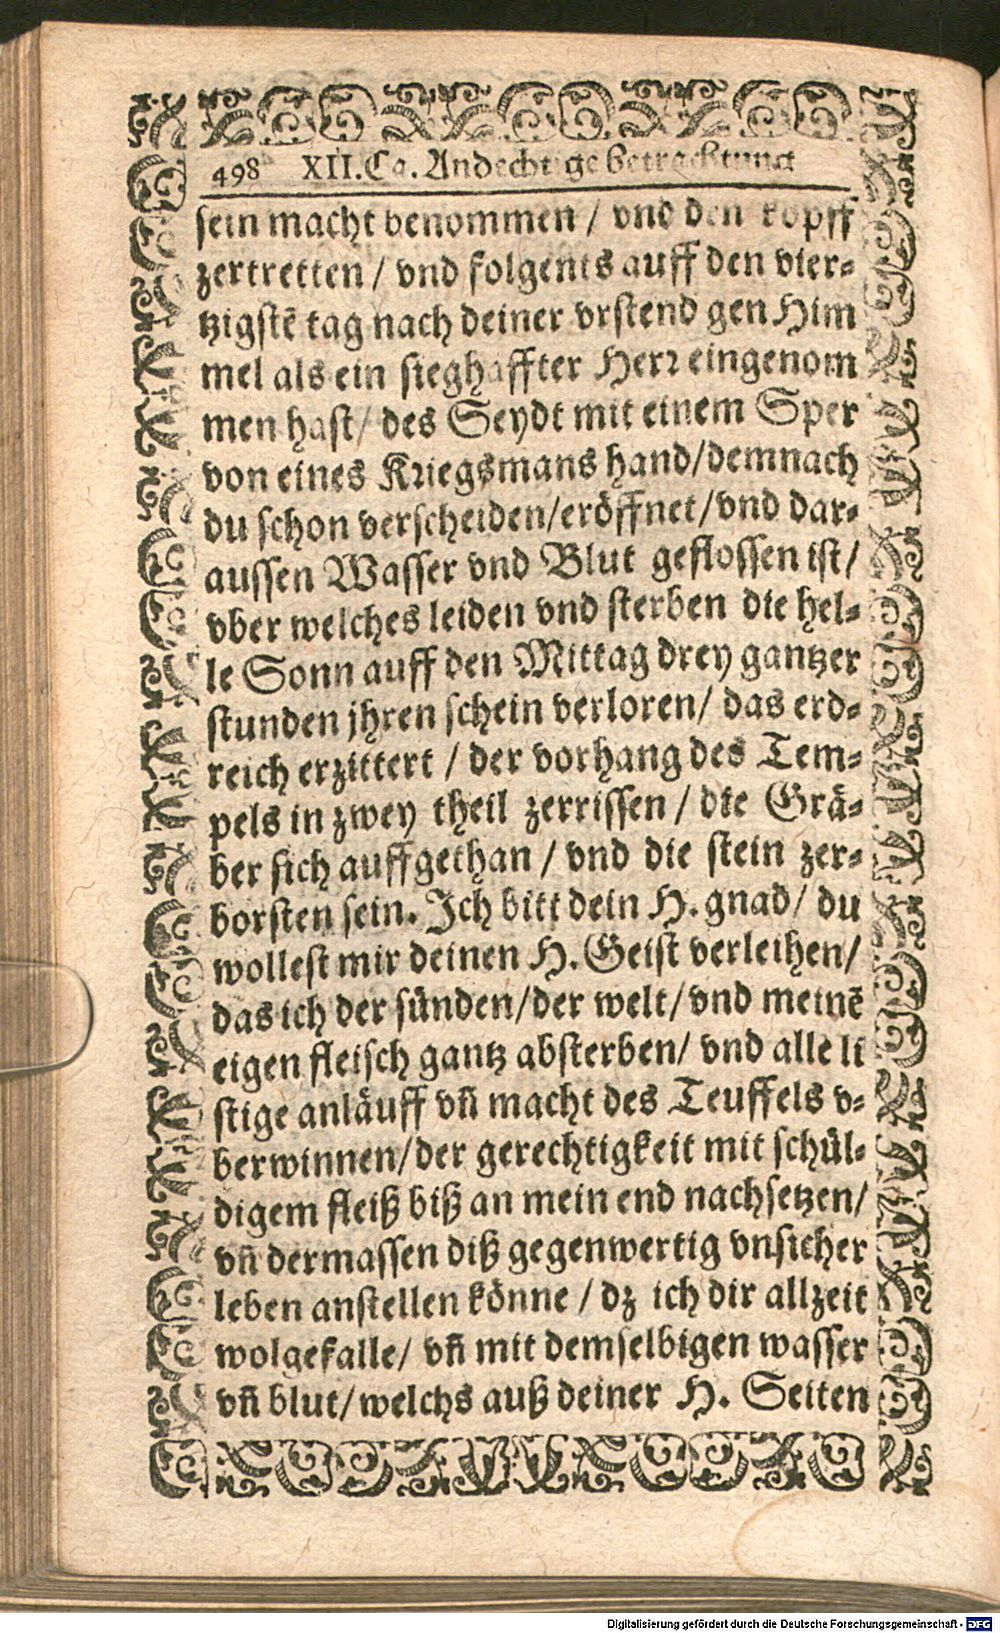 498 XII. Ca. Andechtige betrachtung
sein macht benommen / vnd den kopff
zertretten / vnd folgents auff den vier-
tzigstē tag nach deiner vrstend gen Him
mel als ein sieghaffter Herr eingenom
men hast / des Seydt mit einem Sper
von eines Kriegsmans hand / demnach
du schon verscheiden / eröffnet / vnd dar-
aussen Wasser vnd Blut geflossen ist /
vber welches leiden vnd sterben die hel-
le Sonn auff den Mittag drey gantzer
stunden jhren schein verloren / das erd-
reich erzittert / der vorhang des Tem-
pels in zwey theil zerrissen / die Grä-
ber sich auffgethan / vnd die stein zer-
borsten sein. Ich bitt dein H. gnad / du
wollest mir deinen H. Geist verleihen /
das ich der sünden / der welt / vnd meinē
eigen fleisch gantz absterben / vnd alle li
stige anläuff vñ macht des Teuffels v-
berwinnen / der gerechtigkeit mit schül-
digem fleiß biß an mein end nachsetzen /
vñ dermassen diß gegenwertig vnsicher
leben anstellen könne / dz ich dir allzeit
wolgefalle / vñ mit demselbigen wasser
vñ blut / welchs auß deiner H. Seiten
Digitalisierung gefördert durch die Deutsche Forschungsgemeinschaft - DFG